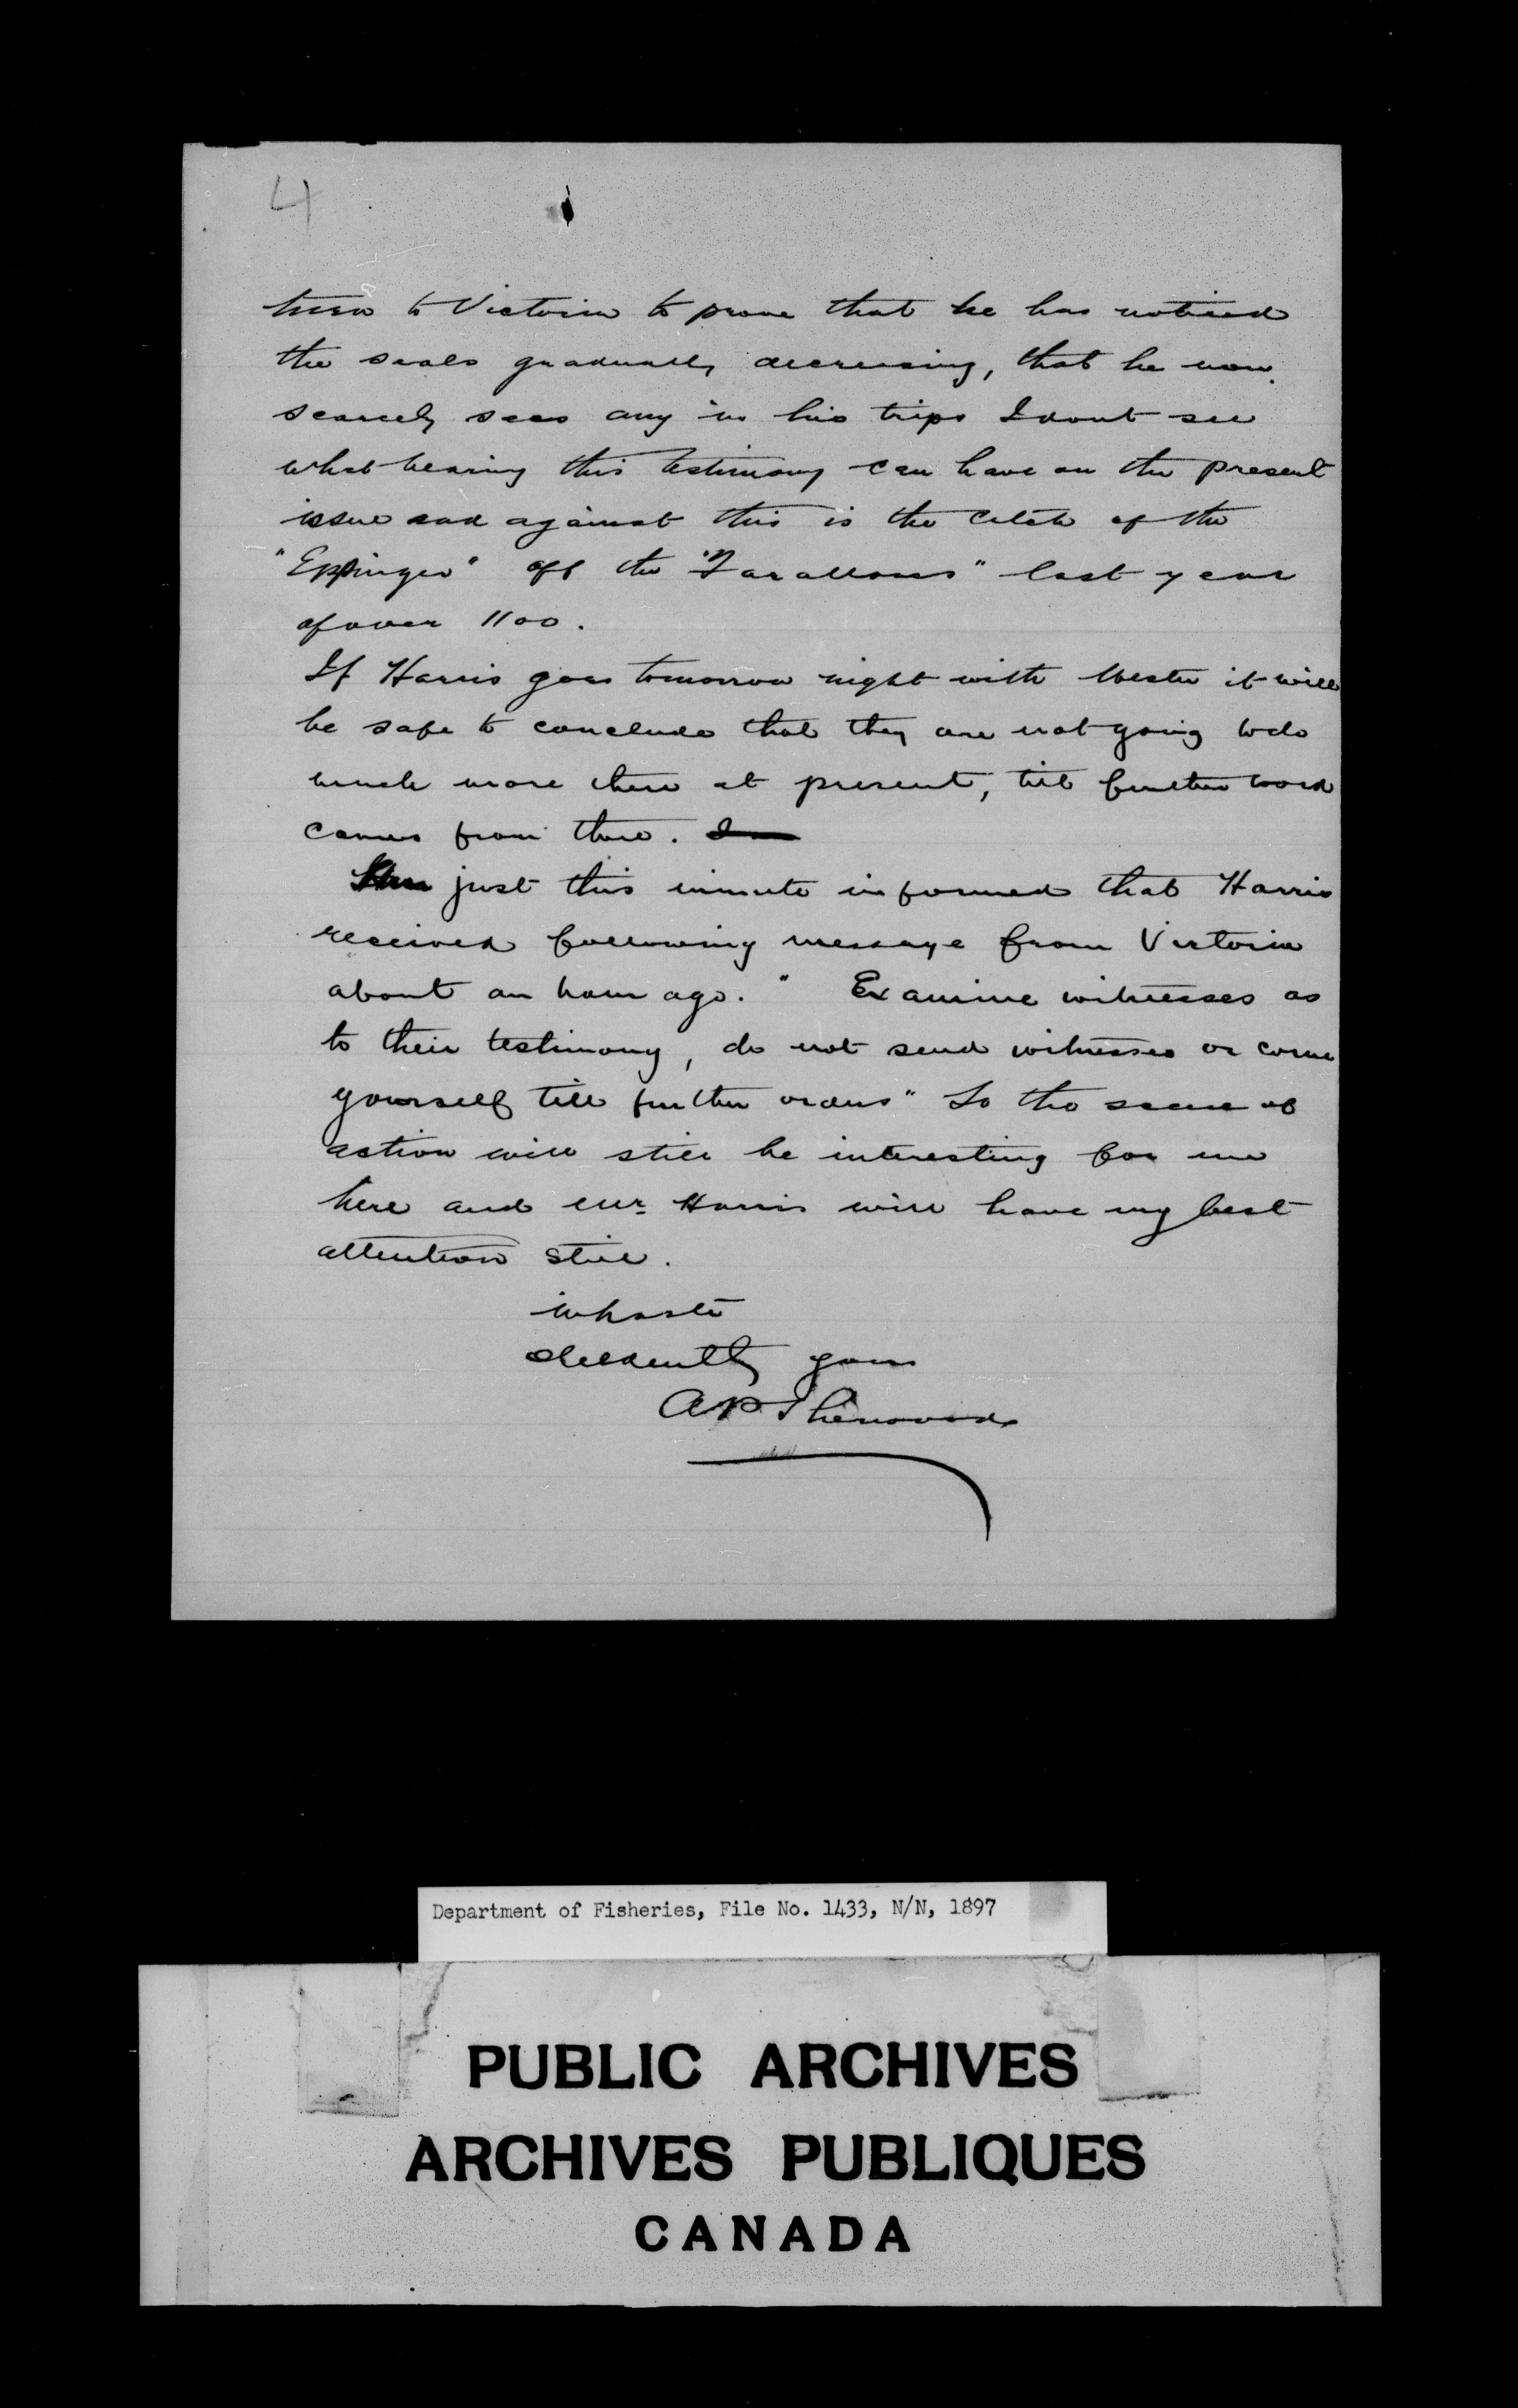 4
him to Victoria to prove that he has noticed
the seals gradually decreasing, that he now
scarcely sees any in his trips I dont see
what bearing this testimony can have on the present
issue and against this is the catch of the
"Eppinger" off the "Farallones" last year
of over 1100.
If Harris goes tomorrow night with it will
be safe to conclude that they are not going to do
much more here at present, till further word
comes from there.
just this minute informed that Harris
received following message from Victoria
about an hour ago. " Examine witnesses as
to their testimony, do not send witnesses or come
yourself till further orders" So the scene of
action will still be interesting for me
here and Mr. Harris will have my best
attention still.
in haste
obediently yours
A P Sherwood
Department of Fisheries, File No. 1433, N/N, 1897
PUBLIC ARCHIVES
ARCHIVES PUBLIQUES
CANADA